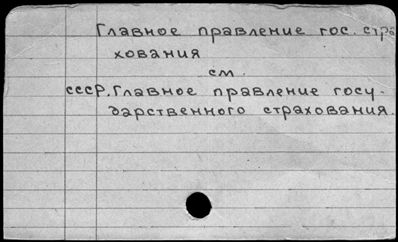 Главное правление гос. стра
хования
см.
СССР. Главное правление госу-
дарственного страхования.